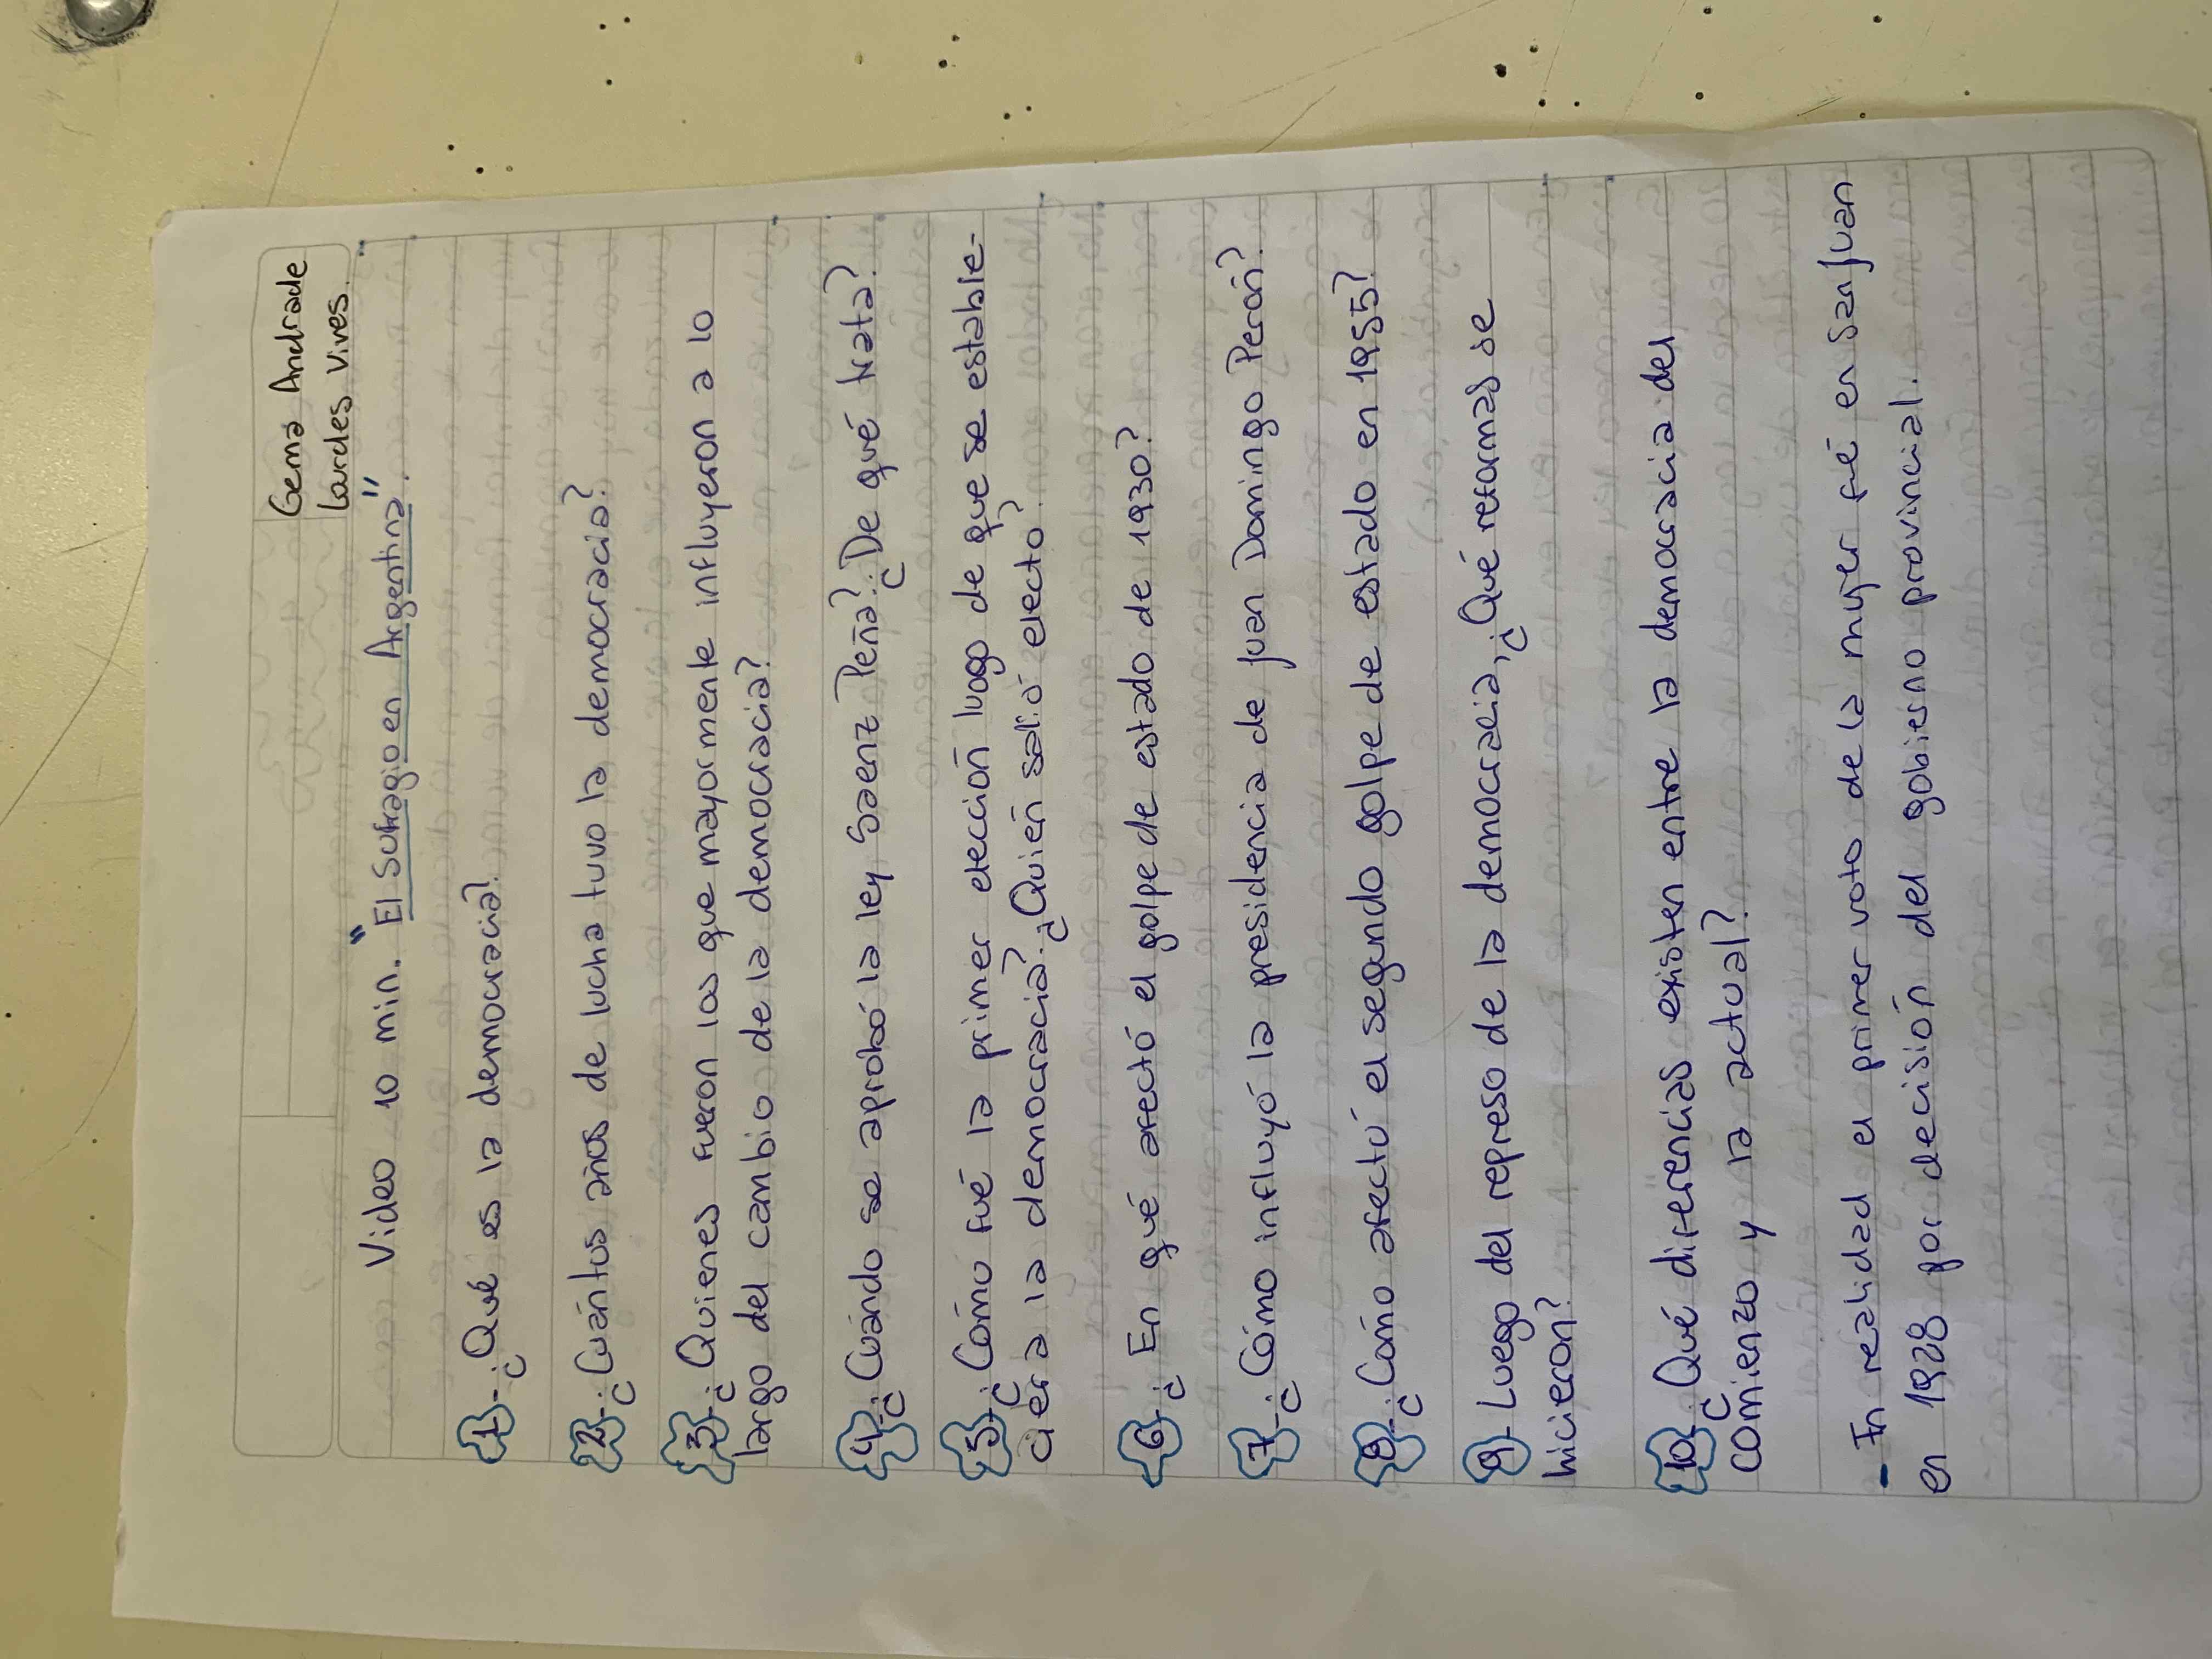 Gema Andrade
Lourdes Vives.
Video 10 min. "El sufragio en Argentina".
1- ¿Qué es la democracia?
2- ¿Cuántos años de lucha tuvo la democracia?
3- ¿Quienes fueron los que mayormente influyeron a lo
largo del cambio de la democracia?
4- ¿Cuándo se aprobó la ley Saenz Peña? ¿De qué trata?
5- ¿Cómo fué la primer elección luego de que se estable-
ciera la democracia? ¿Quién salió electo?
6- ¿En qué afectó el golpe de estado de 1930?
7- ¿Cómo influyó la presidencia de Juan Domingo Perón?
8- ¿Cómo afectó el segundo golpe de estado en 1955?
9- Luego del represo de la democracia, ¿Qué reformas se
hicieron?
10- ¿Qué diferencias existen entre la democracia del
comienzo y la actual?
- En realidad el primer voto de la mujer fé en San Juan
en 1928 por decisión del gobierno provincial.